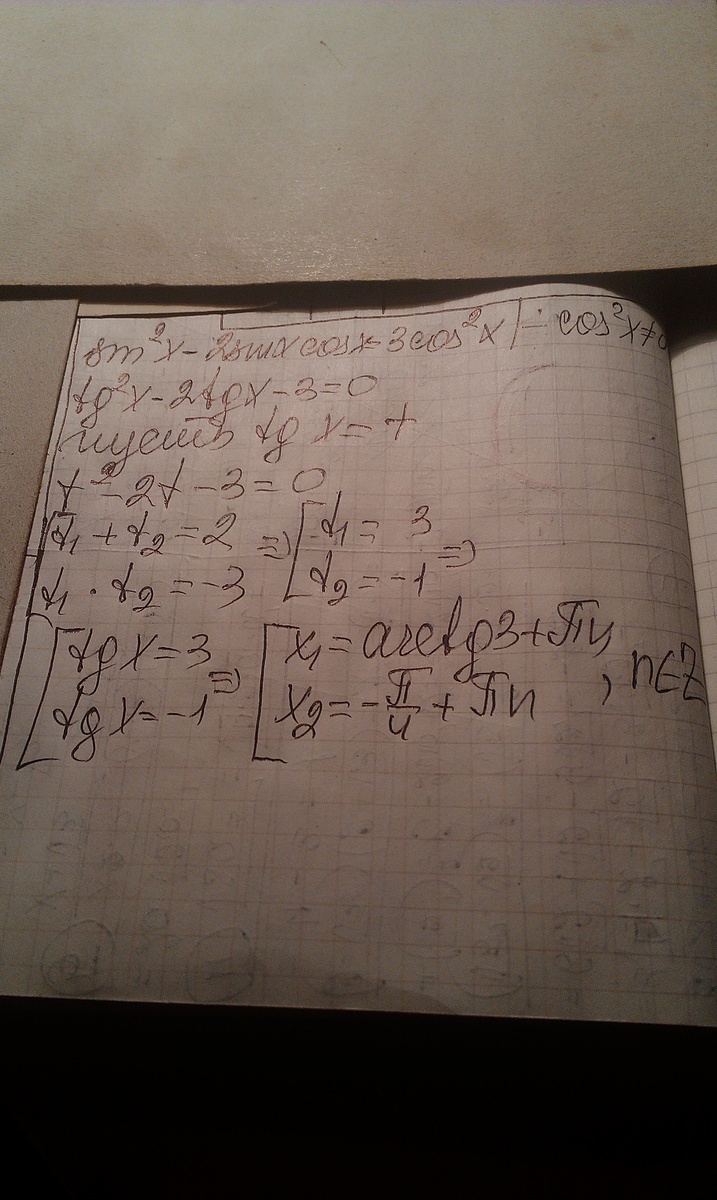 sin²x - 2sinx cosx = 3cos²x | : cos²x ≠ 0
tg²x - 2tgx - 3 = 0
пусть tg x = t
t² - 2t - 3 = 0
[ t₁ + t₂ = 2 => [ t₁ = 3 =>
t₁ · t₂ = -3 t₂ = -1
[ tgx = 3 => [ x₁ = arctg3 + πn
tgx = -1 x₂ = -π/4 + πn , n∈Z